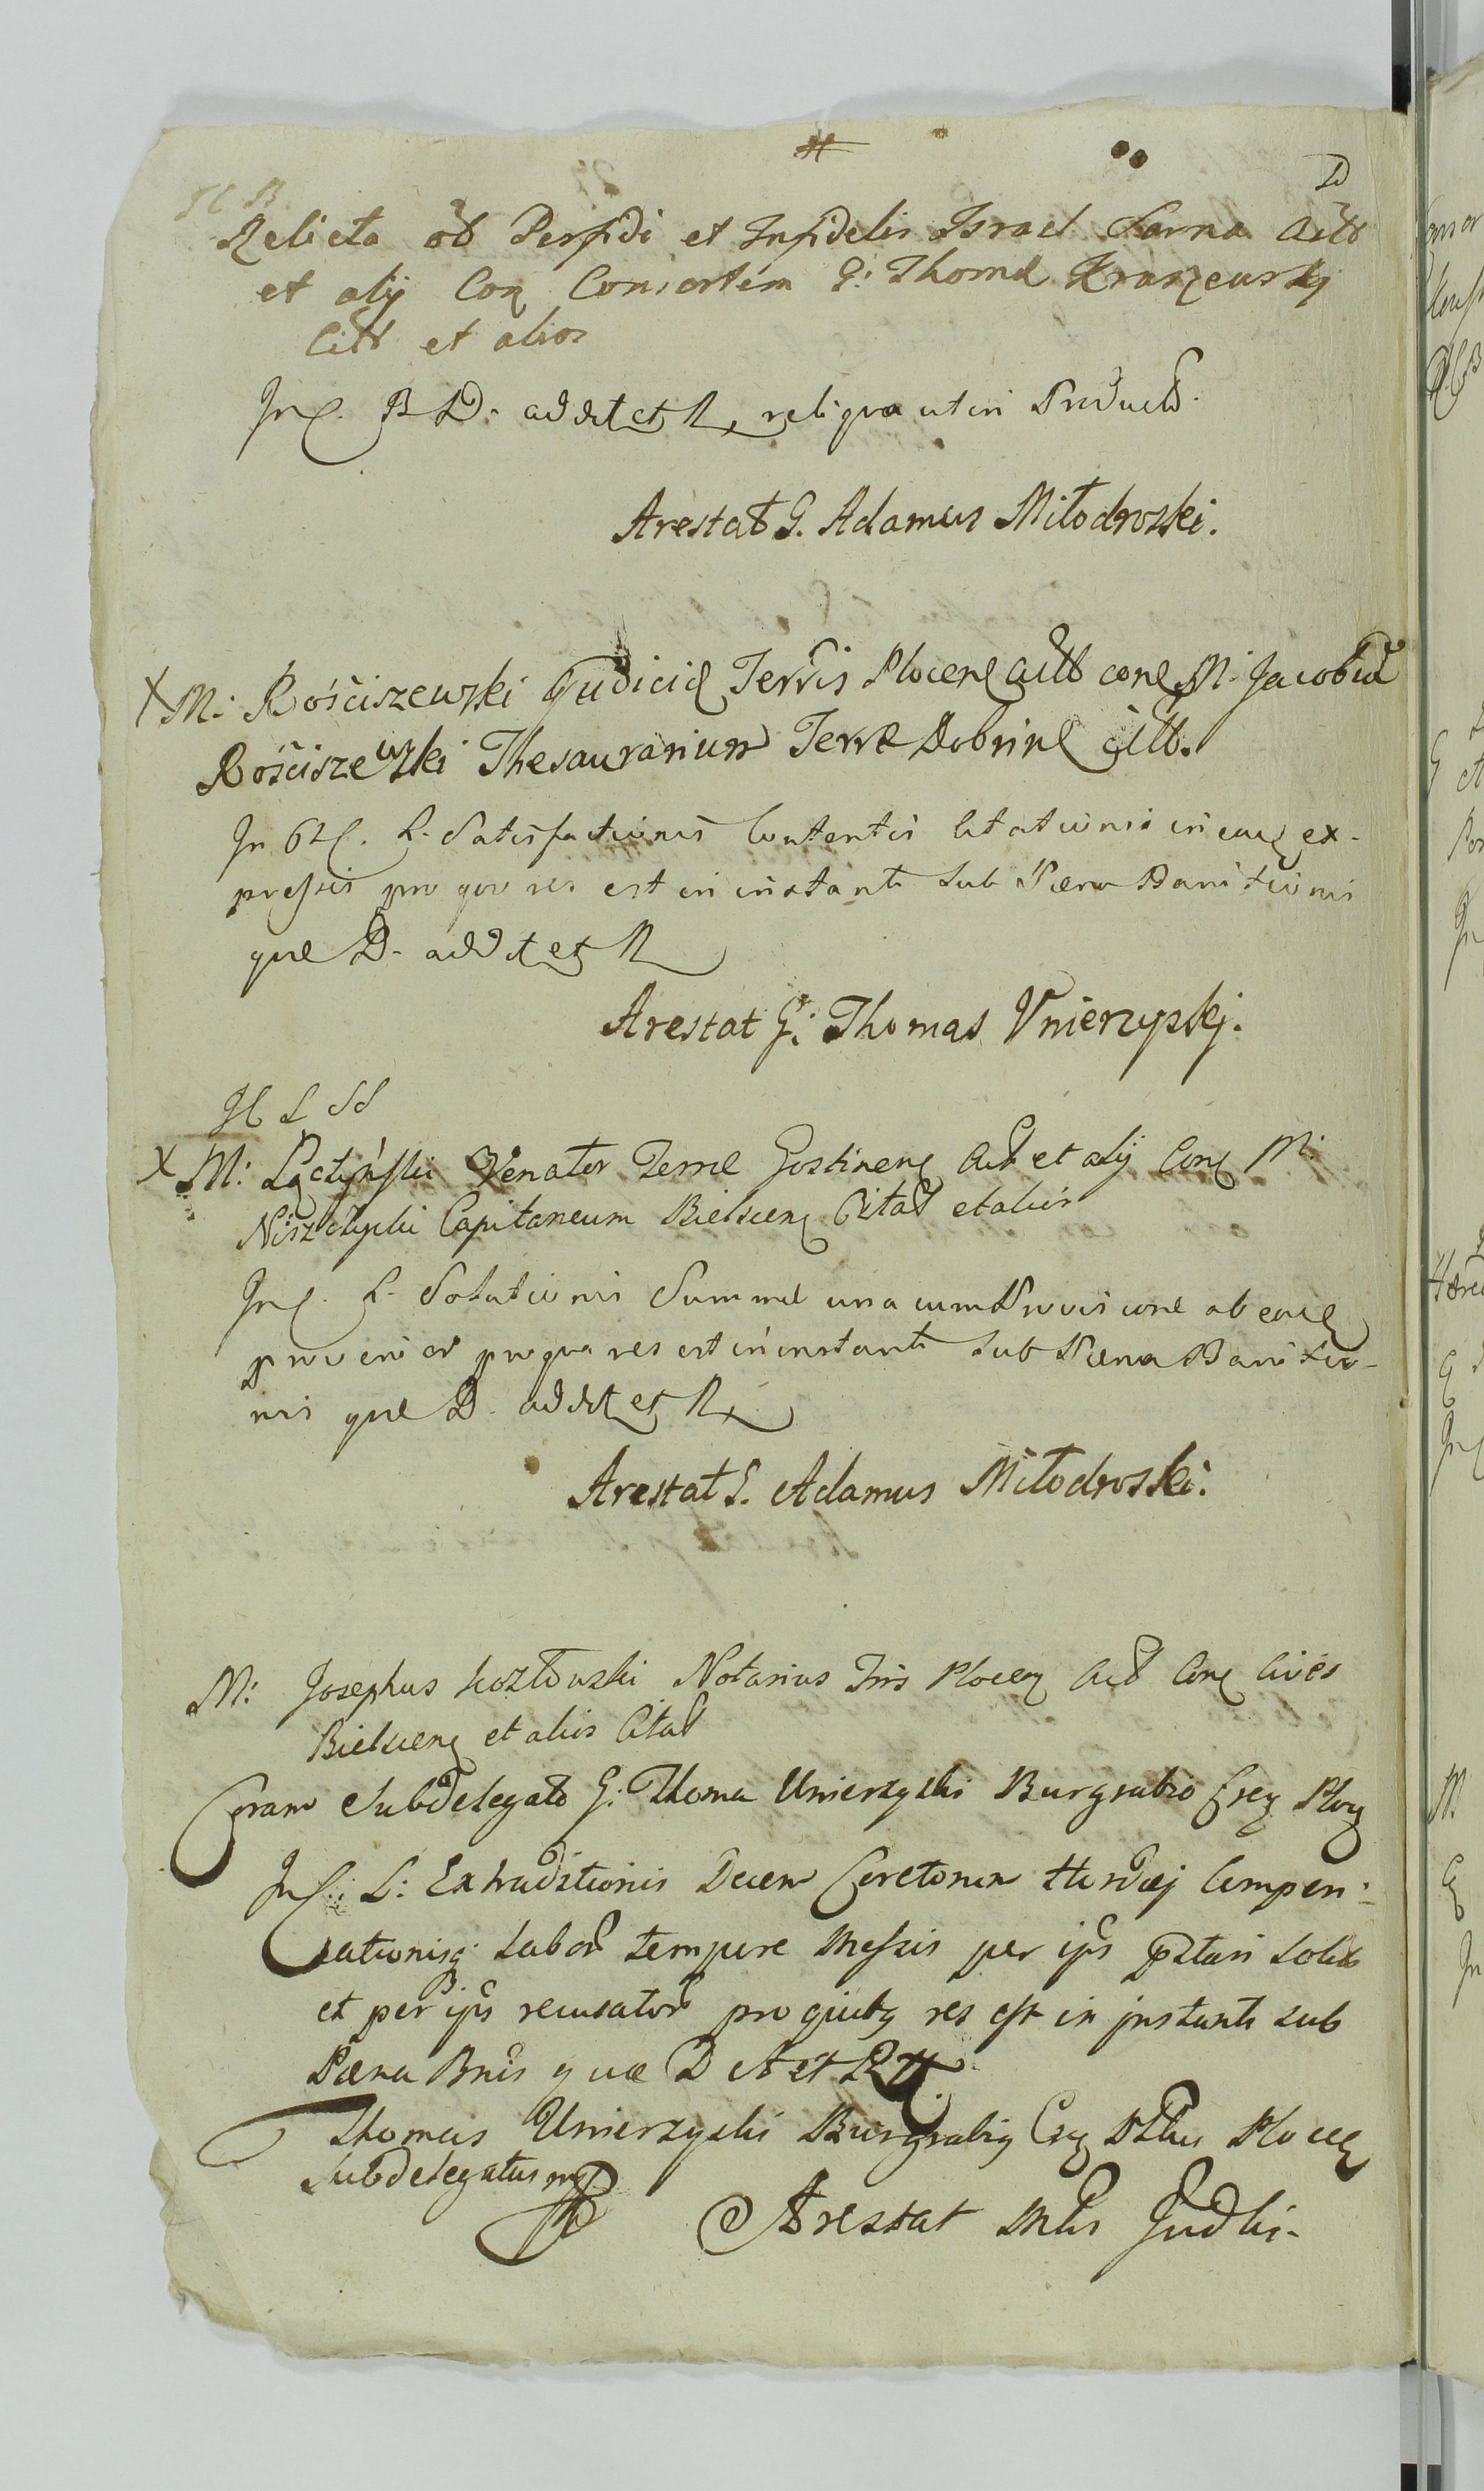 H B
Relicta ob Perfidi et Infidelis Israel Sarna Act
et alij Con Consortem G: Thomæ Kraszewskj
Citt et alios
In C. B D. addit et R reliqua ut in Product.
Arestat G. Adamus Miłodroski.
X M: Róściszewski Judicis Terris Plocen Actt con M. Jacobum
Róściszewski Thesaurarium Terræ Dobrine citt.
In C. L. Satisfactionis Contentis Citationis in eaq ex-
pressis pro quo res est in instanti sub Pæna Banitionis
quæ D. addit et R
Arestat G: Thomas Vnierzyskj.
H L
X M: Łączyński Venator Terræ Gostinen Act et alij Con M:
Niszczycki Capitaneum Bielscen Citat et alios
In C. L. Solutionis Summæ una cum Provisione ab eaq
pro qua res est in instanti sub Pæna Banitio-
nis quæ D. addit et R
Arestat G. Adamus Miłodroski.
M: Josephus Kozłowski Notarius Tris Plocen Act Con Cives
Bielscen et alios Citat
Coram Subdelegato G: Thoma Unierzyski Burgrabio Cren Plocen
In C. L: Extraditionis Decem Coretorum Hordej Compen-
sationisq labor tempore Messis per ips pstari solit
et per ips recusator pro quibq res est in jnstanti sub
Pæna Bnis quæ D A et R
Thomas Unierzyski Burgrabiq Crq Plocen
Subdelegatus mp
Arestat Mtis Judlis-